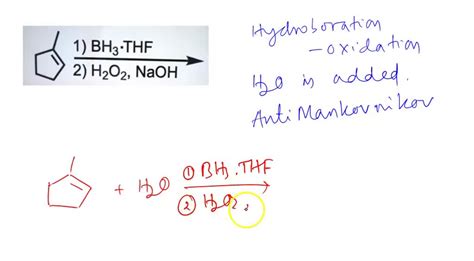 1) BH3·THF
2) H2O2, NaOH
Hydroboration
- oxidation
H2O is added.
Anti Mankovnikov
+ H2O ① BH3.THF
② H2O2,